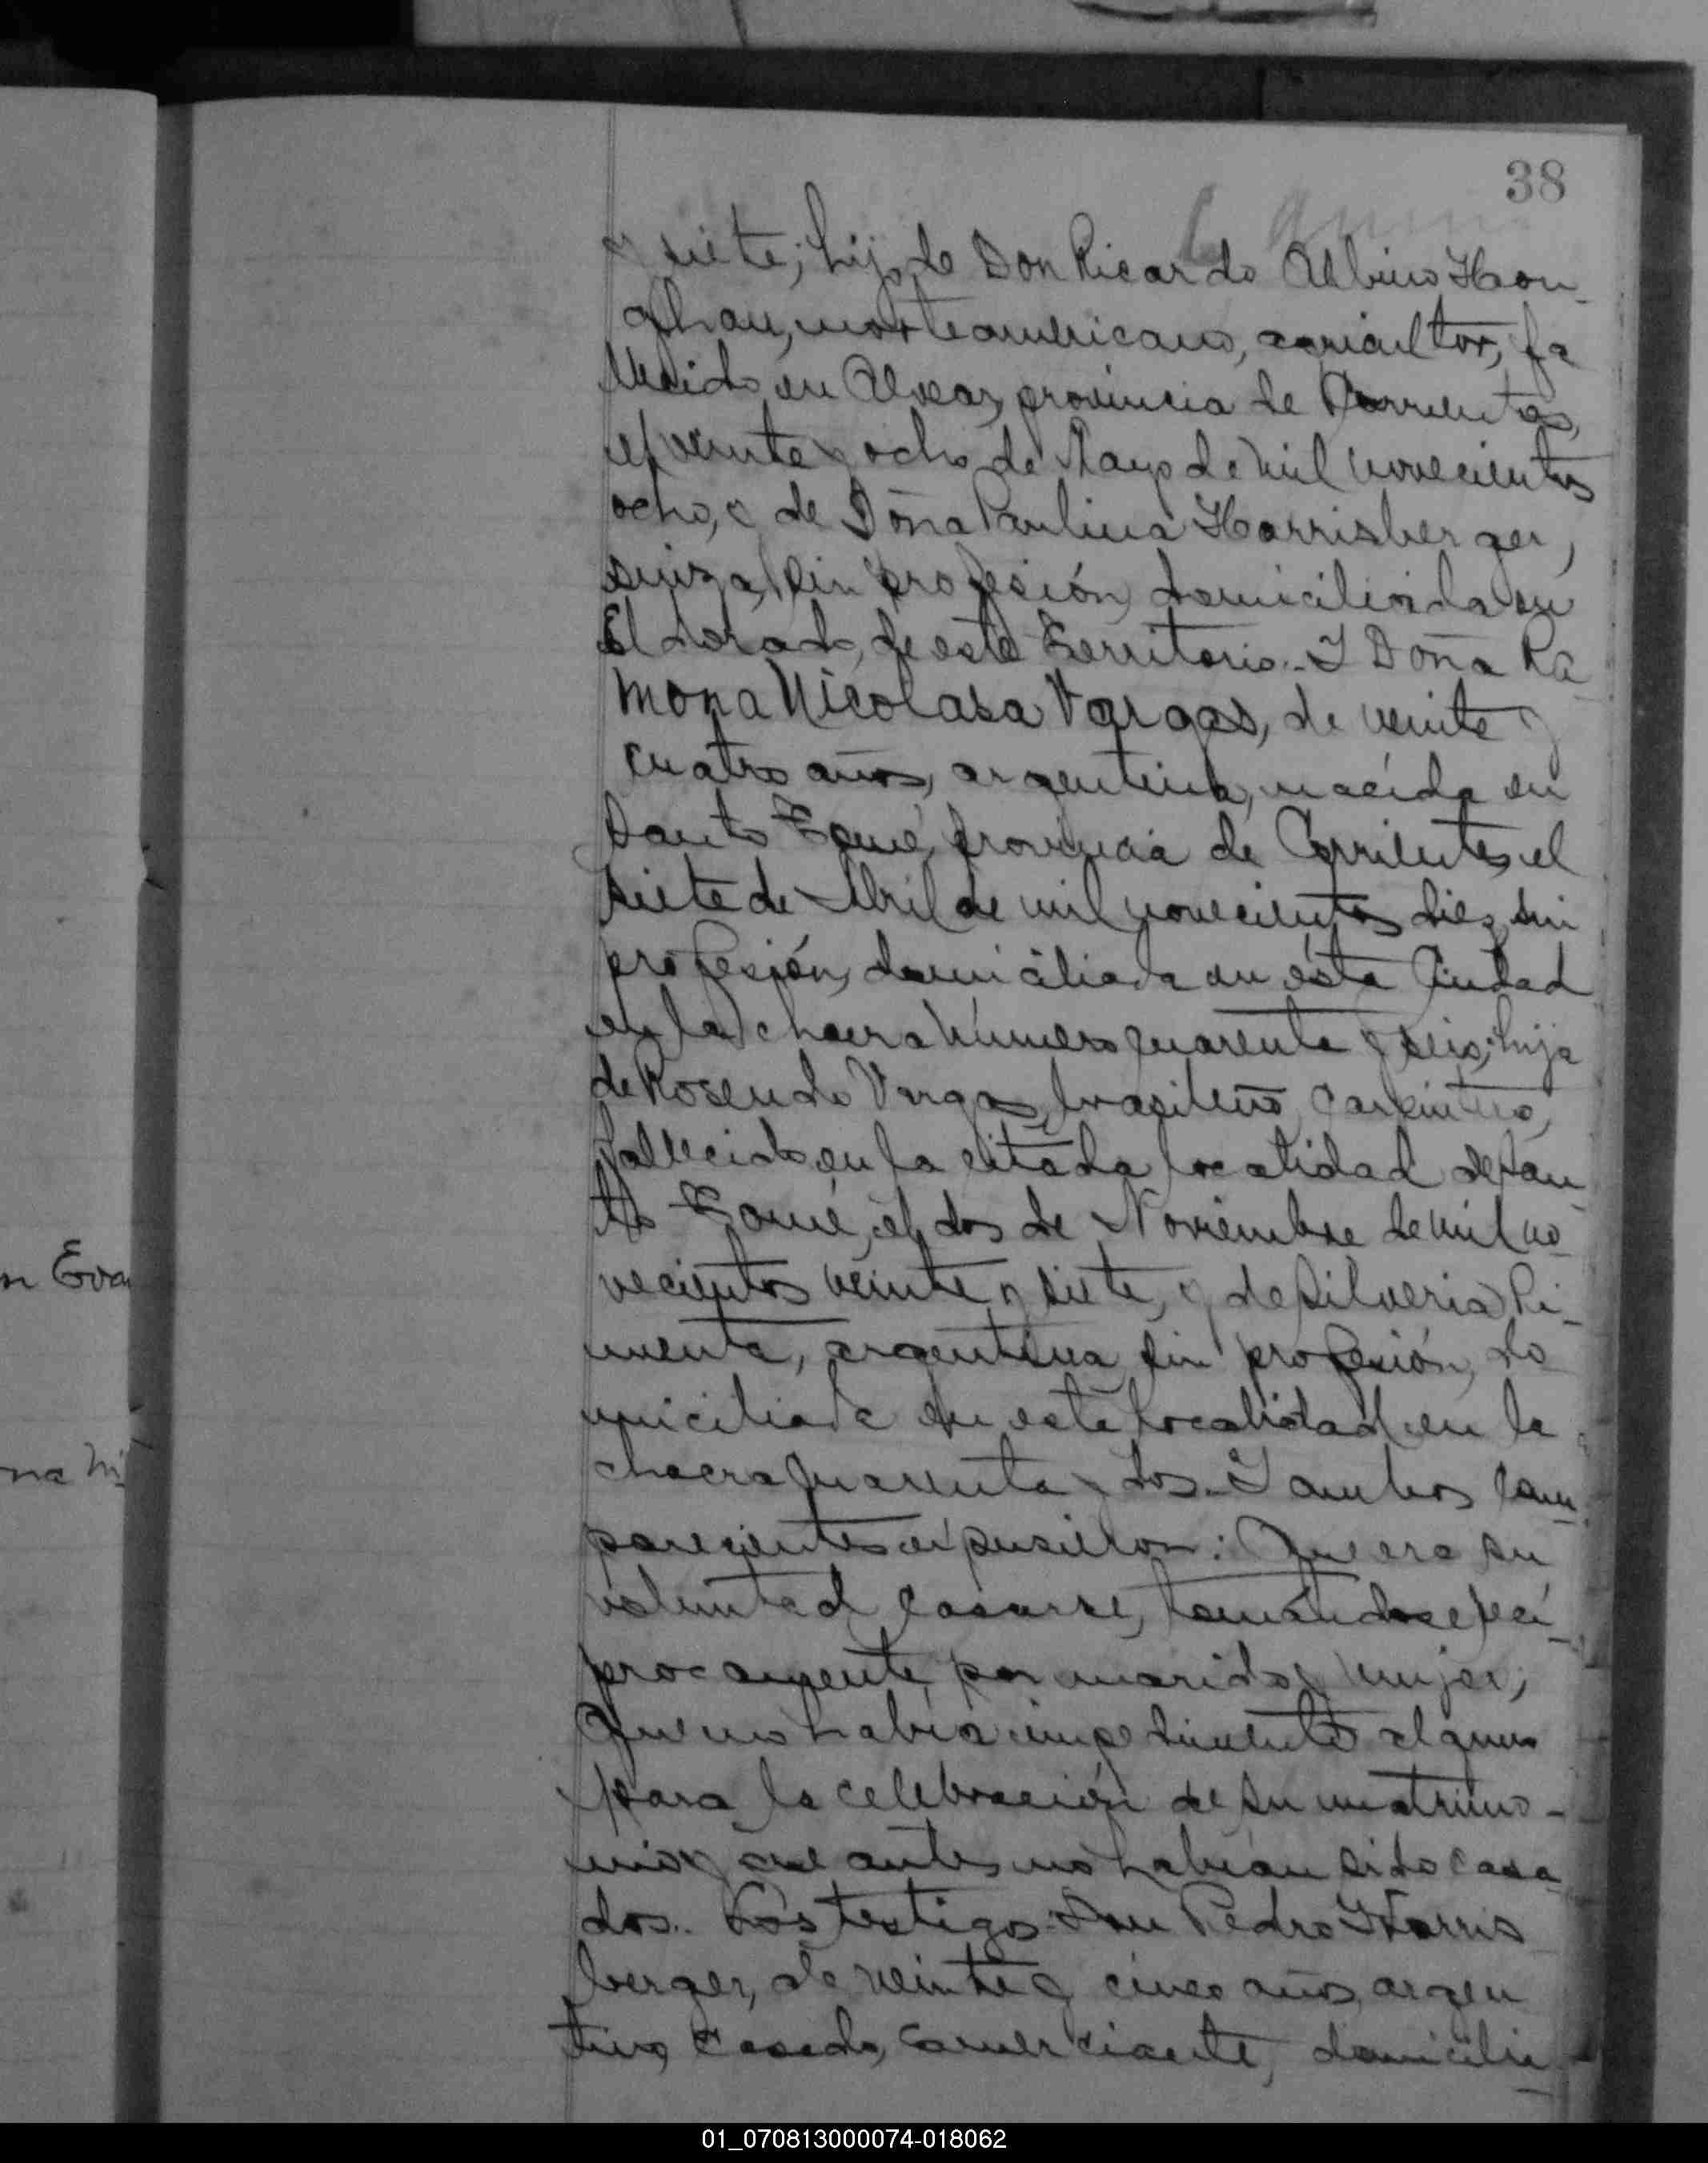 38
y siete; hijo de Don Ricardo Albino Hon-
ghan, norteamericano, agricultor, fa
llecido en Alvear, provincia de Corrientes,
el veinte y ocho de Mayo de mil novecientos
ocho, y de Doña Paulina Harrisberger,
suiza, sin profesión, domiciliada en
Eldorado, de este Territorio.- Y Doña Ra-
mona Nicolasa Vargas, de veinte y
cuatro años, argentina, nacida en
Santo Tomé, provincia de Corrientes, el
siete de Abril de mil novecientos diez, sin
profesión, domiciliada en ésta Ciudad
en la chacra número cuarenta y seis; hija
de Rosendo Vargas, brasileño, carpintero,
fallecido en la citada localidad de San-
to Tomé, el dos de Noviembre de mil no-
vecientos veinte y siete, y de Silveria Pi-
menta, argentina, sin profesión, do
miciliada en esta localidad en la
chacra cuarenta y dos.- Y ambos com-
parecientes expusieron: Que era su
voluntad casarse, tomándose recí-
procamente por marido y mujer;
Que no había impedimento alguno
para la celebración de su matrimo-
nio y que antes no habían sido casa-
dos.- Los testigos Don Pedro Harris
berger, de veinte y cinco años, argen
tino, casado, comerciante, domicilia-
n Eva
na Ni
01_070813000074-018062